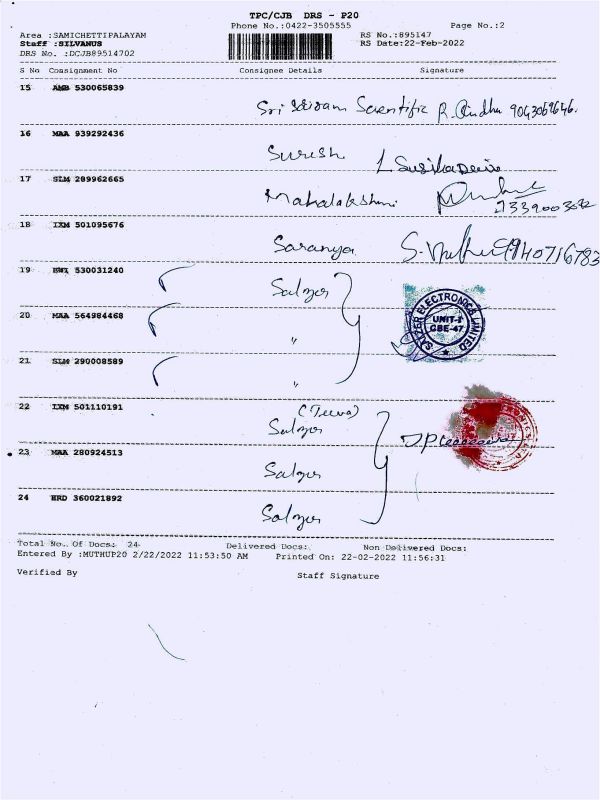 TPC/CJB DRS - P20
Phone No.:0422-3505555 Page No.:2
Area :SAMICHETTIPALAYAM RS No.:895147
Staff :SILVANUS RS Date:22-Feb-2022
DRS No. :DCJB89514702
S No Consignment No Consignee Details Signature
15 AMB 530065839
Sri Scientific R. 9043069646.
16 MAA 939292436
Suresh
17 SLM 289962665
Mahalakshmi 7339003092
18 IXM 501095676
Saranya 9940716783
19 530031240
Salzer
20 MAA 564984468
"
21 SLM 290008589
"
SALZER ELECTRONICS LIMITED
UNIT-I
CBE-47
22 IXM 501110191
Salzer
23 MAA 280924513
Salzer
24 ERD 360021892
Salzer
Total No. Of Docs: 24 Delivered Docs: Non Delivered Docs:
Entered By :MUTHUP20 2/22/2022 11:53:50 AM Printed On: 22-02-2022 11:56:31
Verified By Staff Signature